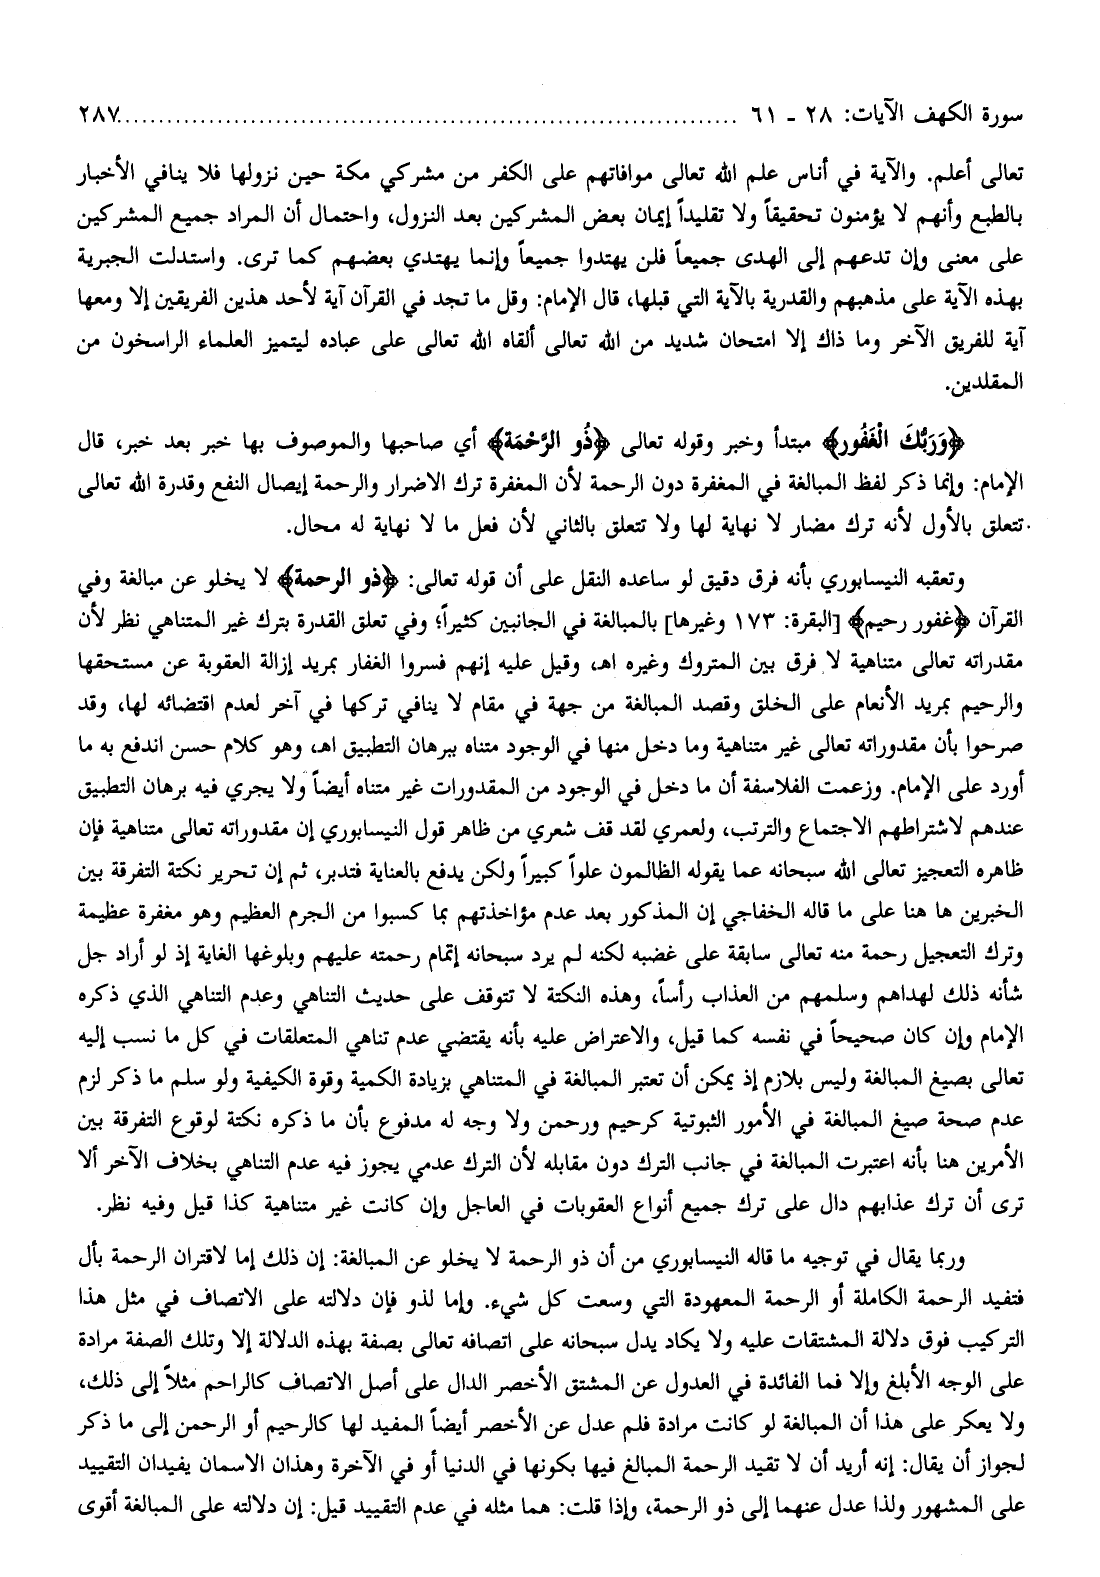 سورة الكهف الآيات: ٢٨ ـ ٦١ .......................................................................... ٢٨٧
تعالى أعلم. والآية في أناس علم الله تعالى موافاتهم على الكفر من مشركي مكة حين نزولها فلا ينافي الأخبار
بالطبع وأنهم لا يؤمنون تحقيقاً ولا تقليداً إيمان بعض المشركين بعد النزول، واحتمال أن المراد جميع المشركين
على معنى وإن تدعهم إلى الهدى جميعاً فلن يهتدوا جميعاً وإنما يهتدي بعضهم كما ترى. واستدلت الجبرية
بهذه الآية على مذهبهم والقدرية بالآية التي قبلها، قال الإمام: وقل ما تجد في القرآن آية لأحد هذين الفريقين إلا ومعها
آية للفريق الآخر وما ذاك إلا امتحان شديد من الله تعالى ألقاه الله تعالى على عباده ليتميز العلماء الراسخون من
المقلدين.
﴿وَرَبُّكَ الْغَفُور﴾ مبتدأ وخبر وقوله تعالى ﴿ذُو الرَّحْمَة﴾ أي صاحبها والموصوف بها خبر بعد خبر، قال
الإمام: وإنما ذكر لفظ المبالغة في المغفرة دون الرحمة لأن المغفرة ترك الاضرار والرحمة إيصال النفع وقدرة الله تعالى
تتعلق بالأول لأنه ترك مضار لا نهاية لها ولا تتعلق بالثاني لأن فعل ما لا نهاية له محال.
وتعقبه النيسابوري بأنه فرق دقيق لو ساعده النقل على أن قوله تعالى: ﴿ذو الرحمة﴾ لا يخلو عن مبالغة وفي
القرآن ﴿غفور رحيم﴾ [البقرة: ١٧٣ وغيرها] بالمبالغة في الجانبين كثيراً؛ وفي تعلق القدرة بترك غير المتناهي نظر لأن
مقدراته تعالى متناهية لا فرق بين المتروك وغيره اهـ، وقيل عليه إنهم فسروا الغفار بمريد إزالة العقوبة عن مستحقها
والرحيم بمريد الأنعام على الخلق وقصد المبالغة من جهة في مقام لا ينافي تركها في آخر لعدم اقتضائه لها، وقد
صرحوا بأن مقدوراته تعالى غير متناهية وما دخل منها في الوجود متناه ببرهان التطبيق اهـ، وهو كلام حسن اندفع به ما
أورد على الإمام. وزعمت الفلاسفة أن ما دخل في الوجود من المقدورات غير متناه أيضاً ولا يجري فيه برهان التطبيق
عندهم لاشتراطهم الاجتماع والترتب، ولعمري لقد قف شعري من ظاهر قول النيسابوري إن مقدوراته تعالى متناهية فإن
ظاهره التعجيز تعالى الله سبحانه عما يقوله الظالمون علواً كبيراً ولكن يدفع بالعناية فتدبر، ثم إن تحرير نكتة التفرقة بين
الخبرين ها هنا على ما قاله الخفاجي إن المذكور بعد عدم مؤاخذتهم بما كسبوا من الجرم العظيم وهو مغفرة عظيمة
وترك التعجيل رحمة منه تعالى سابقة على غضبه لكنه لم يرد سبحانه إتمام رحمته عليهم وبلوغها الغاية إذ لو أراد جل
شأنه ذلك لهداهم وسلمهم من العذاب رأساً، وهذه النكتة لا تتوقف على حديث التناهي وعدم التناهي الذي ذكره
الإمام وإن كان صحيحاً في نفسه كما قيل، والاعتراض عليه بأنه يقتضي عدم تناهي المتعلقات في كل ما نسب إليه
تعالى بصيغ المبالغة وليس بلازم إذ يمكن أن تعتبر المبالغة في المتناهي بزيادة الكمية وقوة الكيفية ولو سلم ما ذكر لزم
عدم صحة صيغ المبالغة في الأمور الثبوتية كرحيم ورحمن ولا وجه له مدفوع بأن ما ذكره نكتة لوقوع التفرقة بين
الأمرين هنا بأنه اعتبرت المبالغة في جانب الترك دون مقابله لأن الترك عدمي يجوز فيه عدم التناهي بخلاف الآخر ألا
ترى أن ترك عذابهم دال على ترك جميع أنواع العقوبات في العاجل وإن كانت غير متناهية كذا قيل وفيه نظر.
وربما يقال في توجيه ما قاله النيسابوري من أن ذو الرحمة لا يخلو عن المبالغة: إن ذلك إما لاقتران الرحمة بأل
فتفيد الرحمة الكاملة أو الرحمة المعهودة التي وسعت كل شيء. وإما لذو فإن دلالته على الاتصاف في مثل هذا
التركيب فوق دلالة المشتقات عليه ولا يكاد يدل سبحانه على اتصافه تعالى بصفة بهذه الدلالة إلا وتلك الصفة مرادة
على الوجه الأبلغ وإلا فما الفائدة في العدول عن المشتق الأخصر الدال على أصل الاتصاف كالراحم مثلاً إلى ذلك،
ولا يعكر على هذا أن المبالغة لو كانت مرادة فلم عدل عن الأخصر أيضاً المفيد لها كالرحيم أو الرحمن إلى ما ذكر
لجواز أن يقال: إنه أريد أن لا تقيد الرحمة المبالغ فيها بكونها في الدنيا أو في الآخرة وهذان الاسمان يفيدان التقييد
على المشهور ولذا عدل عنهما إلى ذو الرحمة، وإذا قلت: هما مثله في عدم التقييد قيل: إن دلالته على المبالغة أقوى